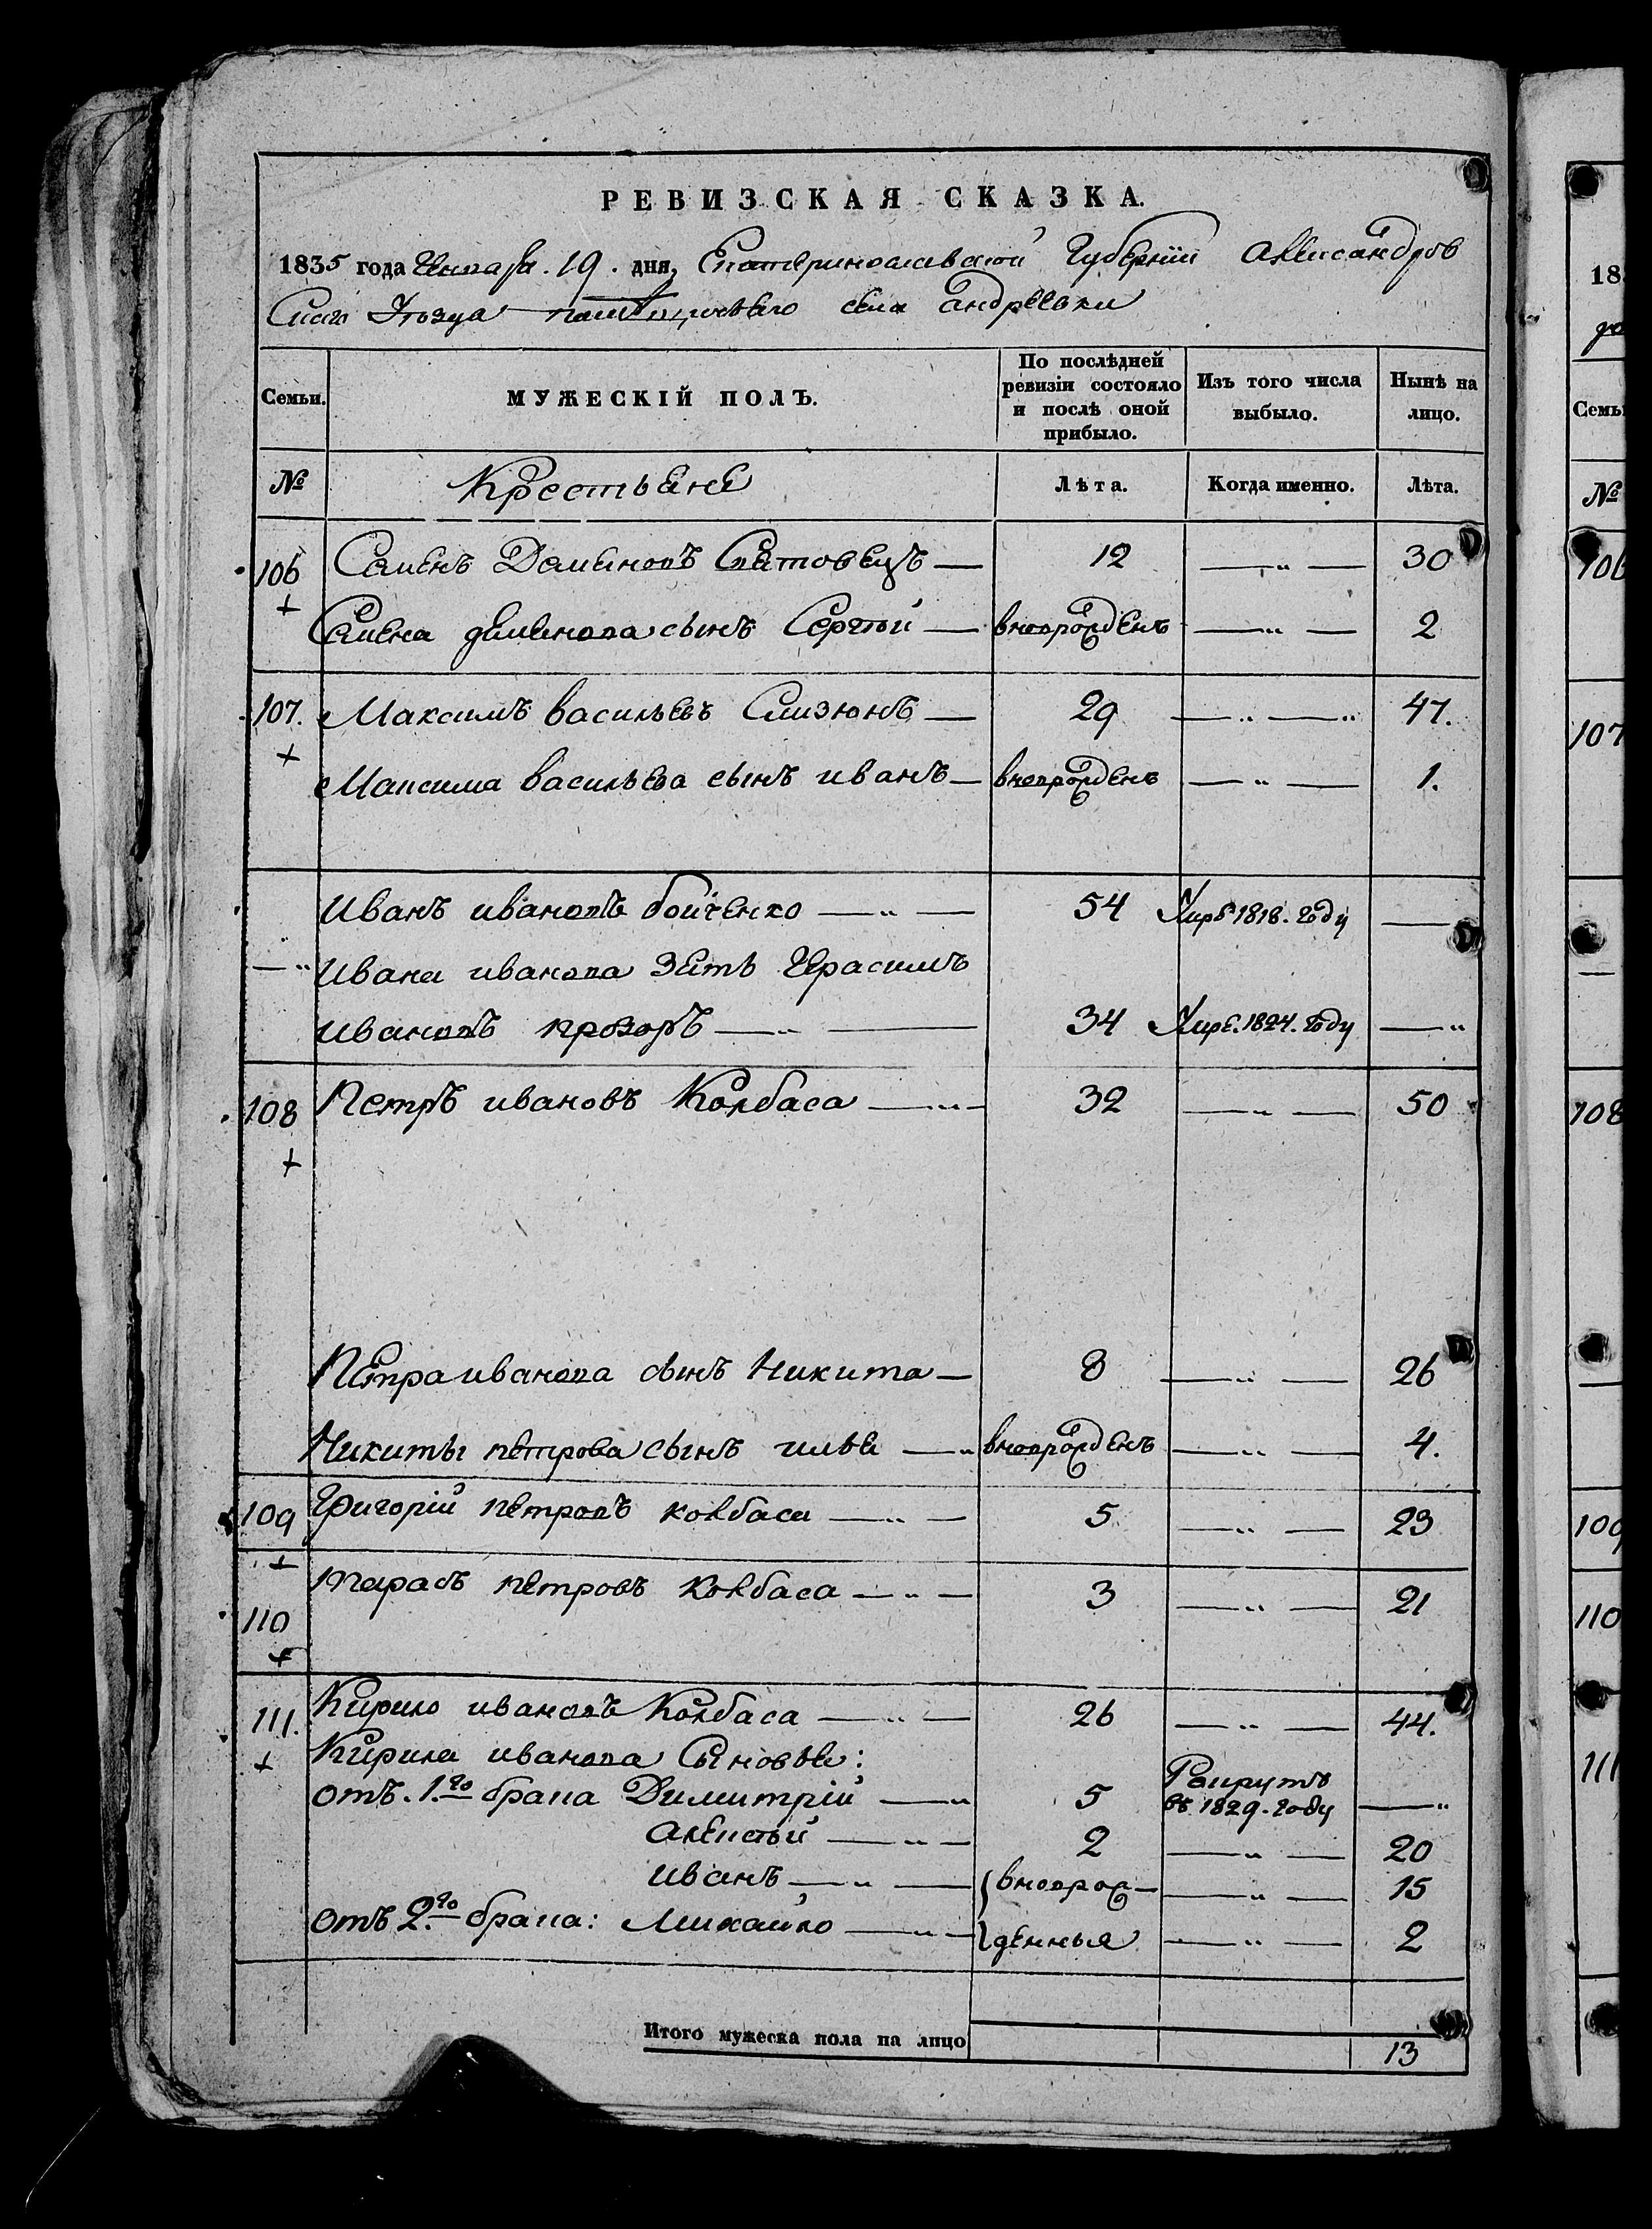 РЕВИЗСКАЯ СКАЗКА.
1835 года Генваря. 19. дня, Екатеринославской Губернии Александров
Скаго Уезда села Андреевки
Семьи. МУЖЕСКІЙ ПОЛЪ. По послѣдней ревизіи состояло и послѣ оной прибыло. Изъ того числа выбыло. Нынѣ на лицо.
№ Крестьяне Лѣта. Когда именно. Лѣта.
106 Семенъ Деменовъ 12 — „ — 30
Семена деменова сынъ Сергѣй — вноврожденъ — „ — 2
107. Максимъ васильевъ Слизюнъ — 29 — „ — „ 47.
Максима васильева сынъ иванъ — вноврожденъ — „ — 1.
Иванъ ивановъ бойченко — „ — 54 Умре 1818. году —
— „ Ивана иванова Зять Герасимъ
ивановъ прозоръ — „ — 34 Умре. 1824. году — „
108 Петръ ивановъ Колбаса — „ — 32 — „ — 50
Петра иванова сынъ Никита — 8 — „ — 26
Никиты петрова сынъ илья — „ вноврожденъ — „ — 4.
109 Григорій петровъ колбаса — „ — 5 — „ — 23
110 тарасъ петровъ колбаса — „ — 3 — „ — 21
111. Кирило ивановъ Колбаса — „ — 26 — „ — 44.
Кирила иванова Сыновья:
отъ. 1.го брака Димитрій — „ 5 Рекрутъ въ 1829. году — „
алексѣй — „ — 2 — „ — 20
иванъ — „ — вноврож— — „ — 15
отъ 2.го брака: Михайло — „ — денныя — „ — 2
Итого мужеска пола на лицо 13
18
Семьи
№
106
107
108
109
110
111